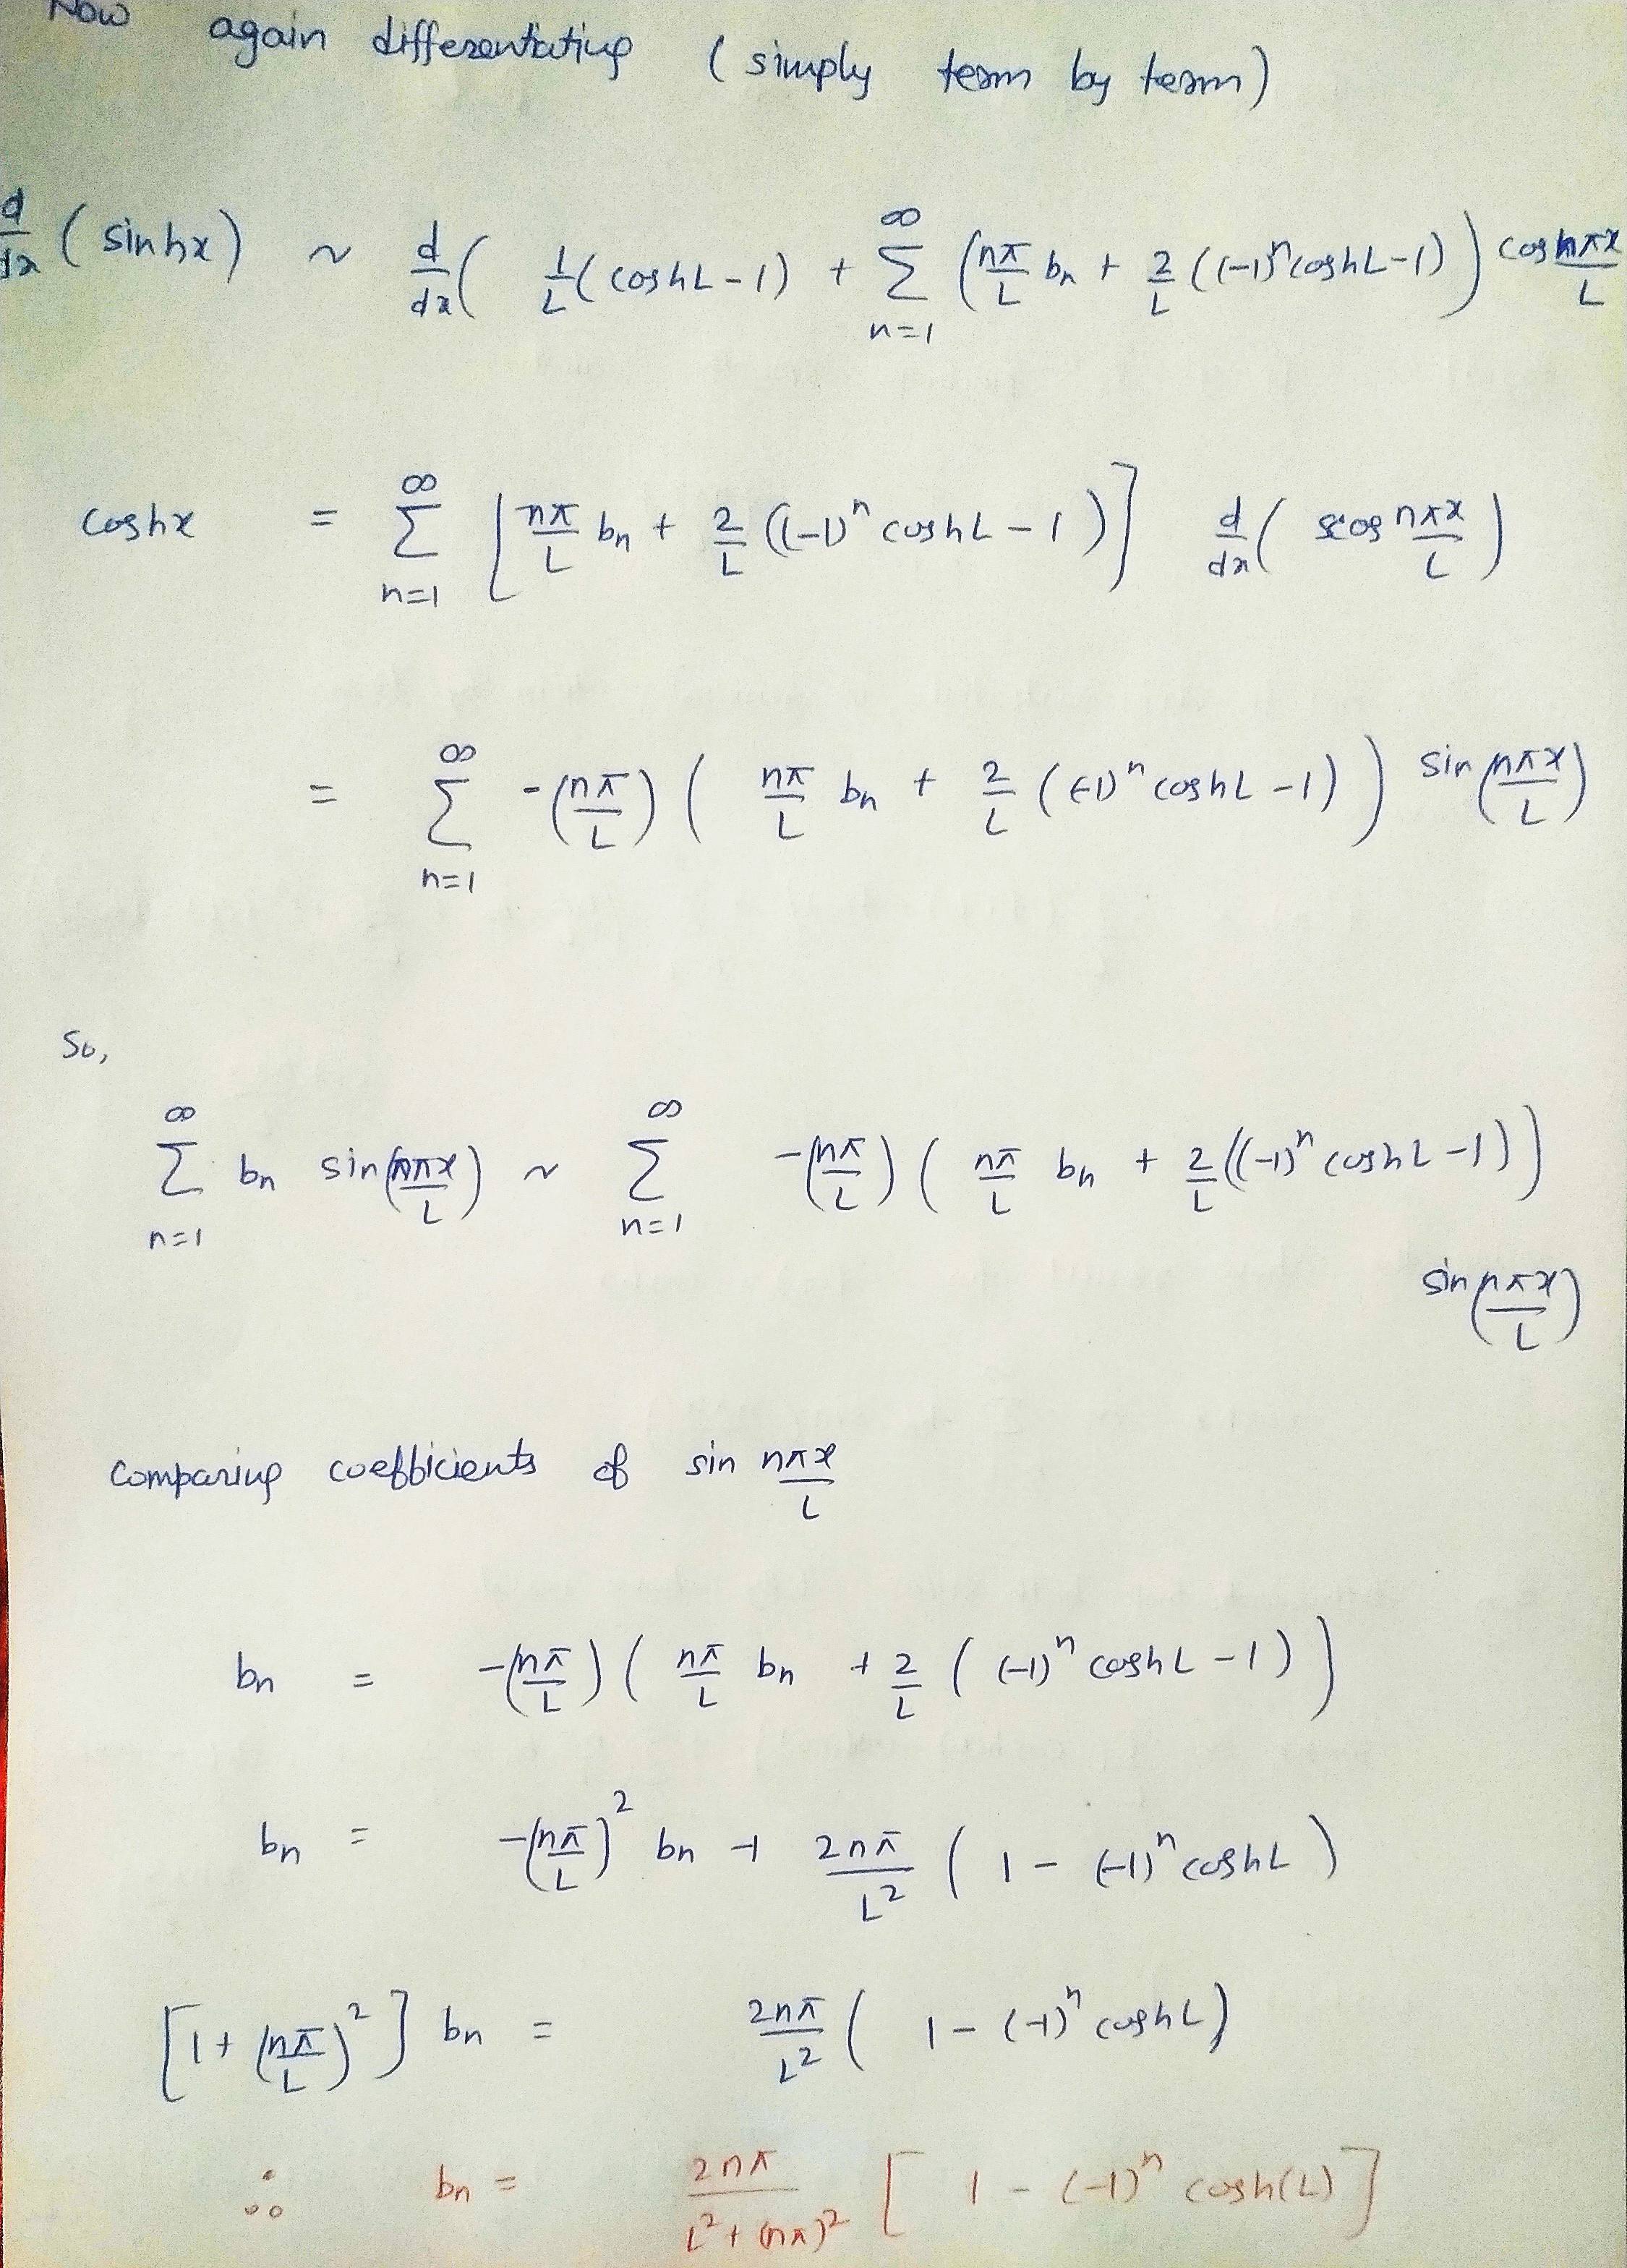 Now again differentiating (simply term by term)
d/dx (sinhx) ~ d/dx ( 1/L (coshL - 1) + ∑_{n=1}^{∞} (nπ/L bn + 2/L ((-1)^n coshL - 1)) cos nπx/L
coshx = ∑_{n=1}^{∞} [nπ/L bn + 2/L ((-1)^n coshL - 1)] d/dx (cos nπx/L)
= ∑_{n=1}^{∞} -(nπ/L) ( nπ/L bn + 2/L ((-1)^n coshL - 1) ) sin(nπx/L)
So,
∑_{n=1}^{∞} bn sin(nπx/L) ~ ∑_{n=1}^{∞} -(nπ/L) ( nπ/L bn + 2/L ((-1)^n coshL - 1))
sin(nπx/L)
Comparing coefficients of sin nπx/L
bn = -(nπ/L) ( nπ/L bn + 2/L ( (-1)^n coshL - 1) )
bn = -(nπ/L)^2 bn + 2nπ/L^2 ( 1 - (-1)^n coshL )
[1 + (nπ/L)^2] bn = 2nπ/L^2 ( 1 - (-1)^n coshL)
∴ bn = 2nπ/(L^2 + (nπ)^2) [ 1 - (-1)^n cosh(L) ]